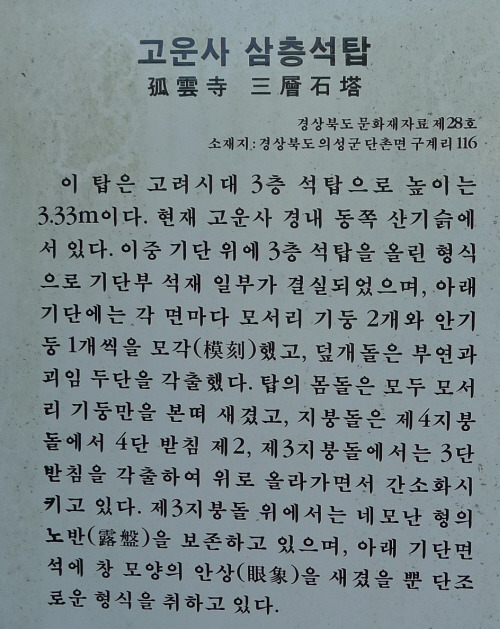 고운사 삼층석탑
孤雲寺 三層石塔
경상북도 문화재자료 제28호
소재지: 경상북도 의성군 단촌면 구계리 116
이 탑은 고려시대 3층 석탑으로 높이는
3.33m이다. 현재 고운사 경내 동쪽 산기슭에
서 있다. 이중 기단 위에 3층 석탑을 올린 형식
으로 기단부 석재 일부가 결실되었으며, 아래
기단에는 각 면마다 모서리 기둥 2개와 안기
둥 1개씩을 모각(模刻)했고, 덮개돌은 부연과
괴임 두단을 각출했다. 탑의 몸돌은 모두 모서
리 기둥만을 본떠 새겼고, 지붕돌은 제4지붕
돌에서 4단 받침 제2, 제3지붕돌에서는 3단
받침을 각출하여 위로 올라가면서 간소화시
키고 있다. 제3지붕돌 위에서는 네모난 형의
노반(露盤)을 보존하고 있으며, 아래 기단면
석에 창 모양의 안상(眼象)을 새겼을 뿐 단조
로운 형식을 취하고 있다.